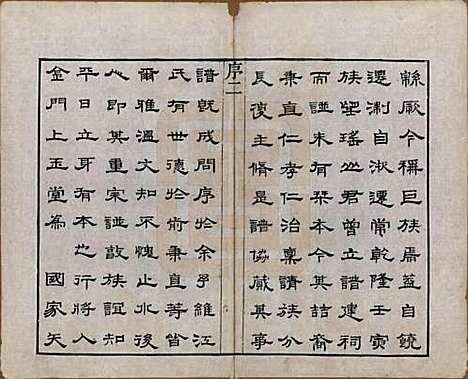 緜厥今稱巨族焉蓋自饒
遷淛自淑遷常乾隆壬寅
族望瑤山君曾立譜建祠
而譜未有栞本今其喆裔
秉直仁孝仁治稟請族分
長復主脩是譜協蕆其事
序二
譜旣成問序於余予維江
氏有世德於前秉直等皆
爾雅溫文知不愧止水後
人即其重宗譜敦族誼知
平日立身有本也行將入
金門上玉堂為 國家矢